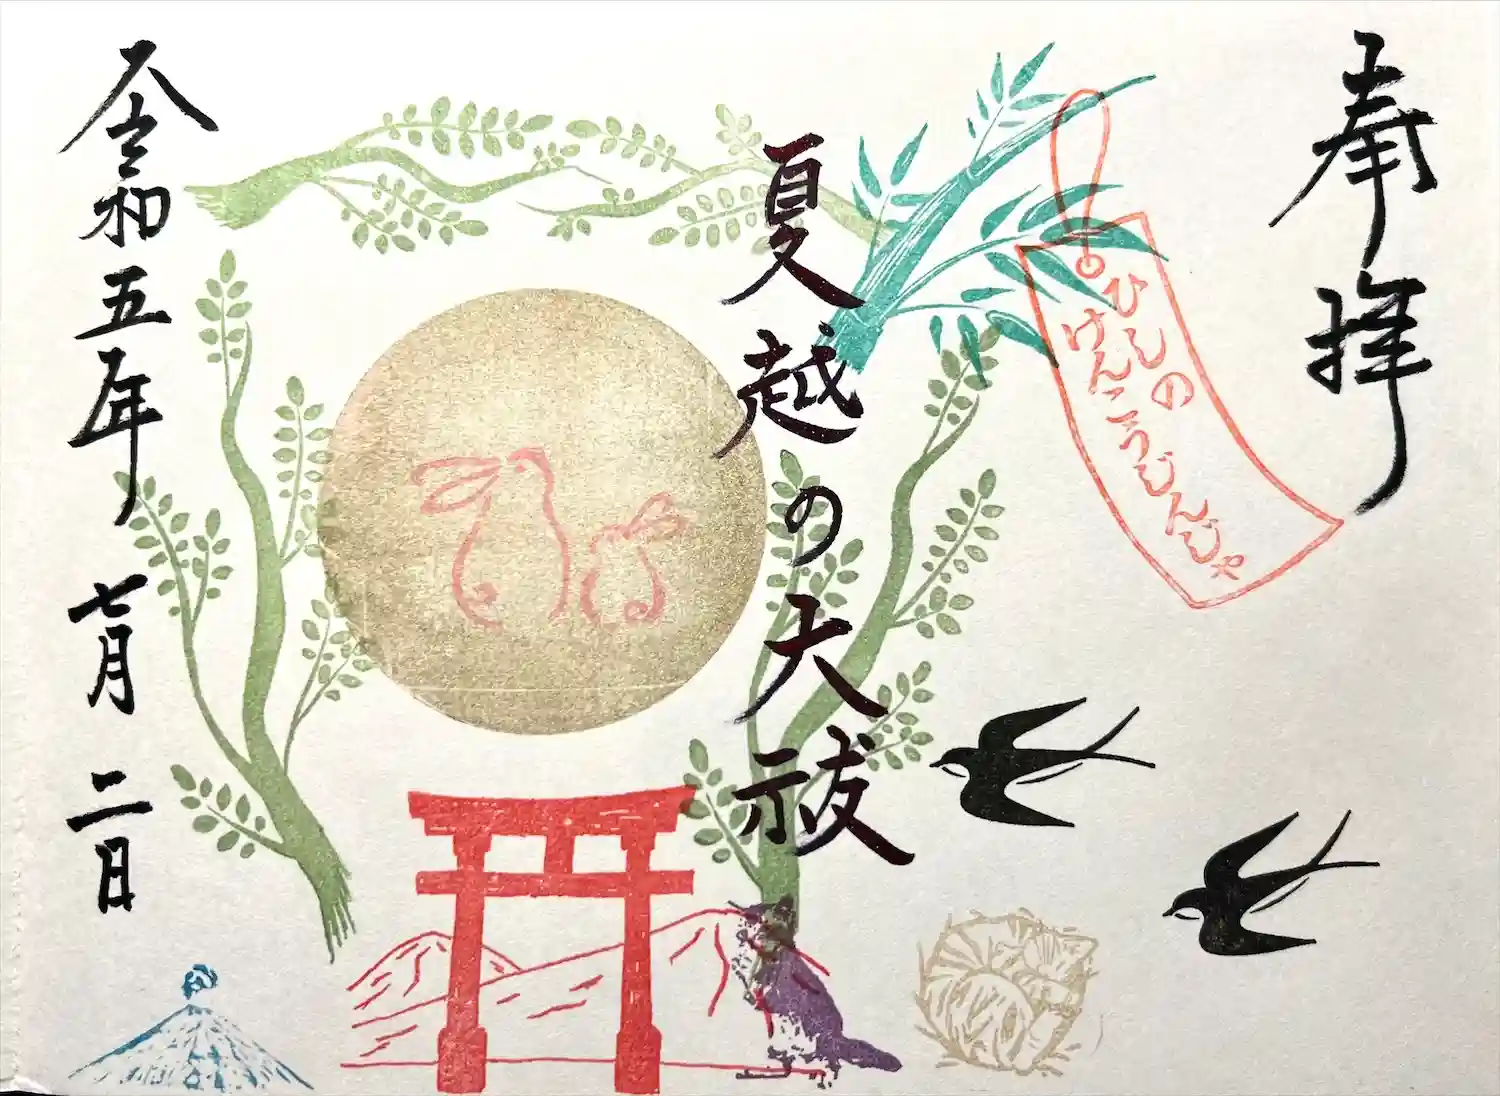 奉拝
ひしの
けんこうじんじゃ
夏越の大祓
令和五年 七月 二日